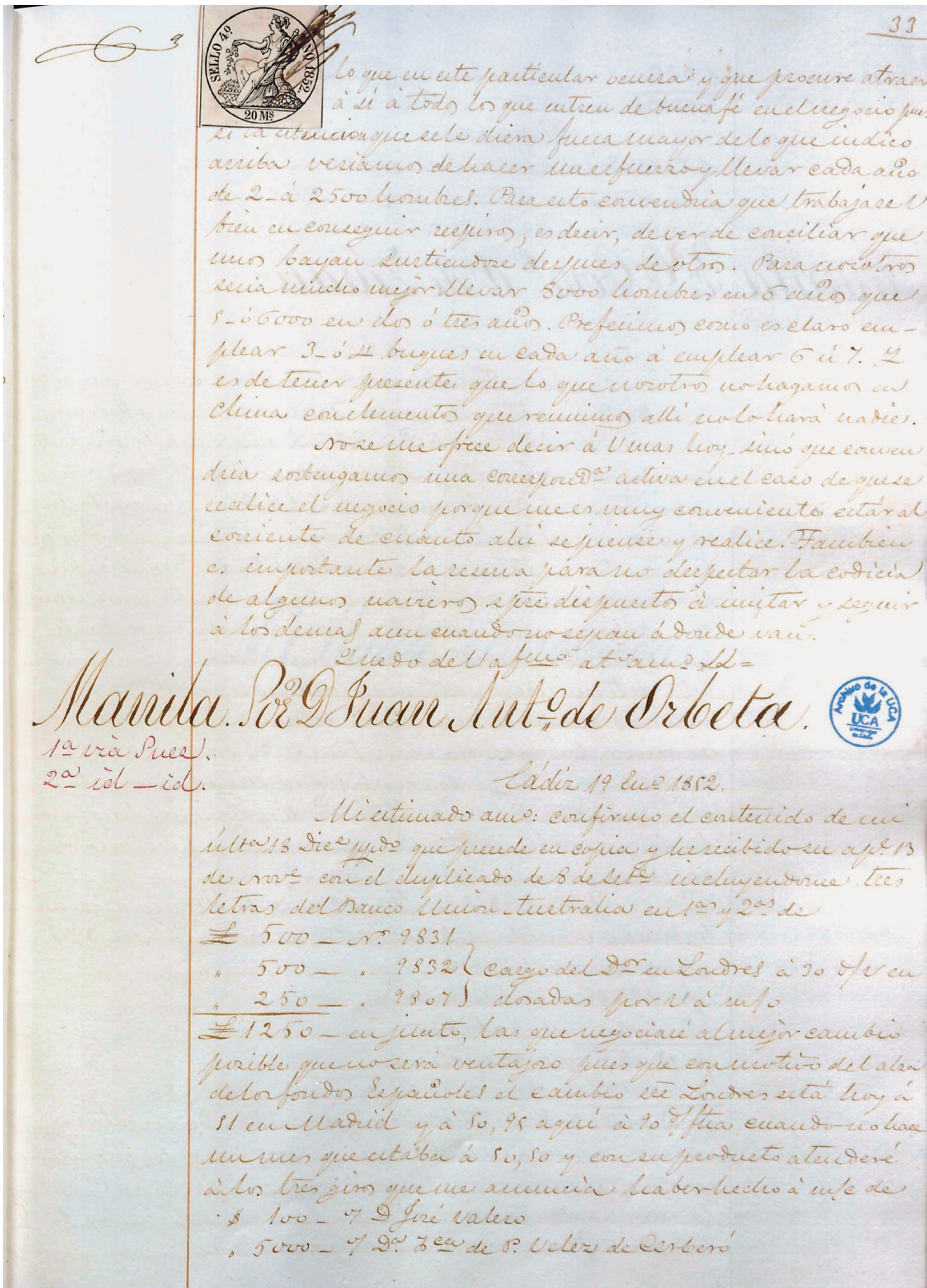 33
SELLO 4º AÑO 1852.
20 Ms
lo que en este particular convenia y que procure atraer
à si à todos los que entren de buena fé en el negocio pues
si la estencion que se le diera fuera mayor de lo que indico
arriba veriamos de hacer un esfuerzo y llevar cada año
de 2_ à 2500 hombres. Para esto convendria que trabajase V
bien en conseguir respiros, es decir, de ver de conciliar que
unos bayan surtiendose despues de otros. Para nosotros
seria mucho mejor llevar 8000 hombres en 6 años que
5_ ó 6000 en dos ó tres años. Preferimos como es claro em-
plear 3_ ó 4 buques en cada año à emplear 6 ú 7. Y
es de tener presente que lo que nosotros no hagamos en
China con elementos que reunimos alli no lo hará nadie.
No se me ofrece decir à V mas hoy sinó que conven
dria sostengamos una correspondª activa en el caso de que se
realice el negocio porque me es muy conveniente estár al
corriente de cuanto ahi se piense y realice. Tambien
es importante la reserva para no despertar la codicia
de algunos navieros spre dispuestos à imitar y seguir
à los demas aun cuando no sepan á donde van.
Quedo de V afmo atº amº SS=
Manila. Sor D Juan Antº de Orbeta.
Archivo de la UCA
UCA
Universidad de Cádiz
1ª via Suez.
2ª id _ id.
Cádiz 19 Enº 1852.
Mi estimado amº: confirmo el contenido de mi
últª 18 Dice ppdo que precede en copia y he recibido su apª 13
de Nove con el duplicado de 8 de Sete incluyendome tres
letras del Banco Union Australia en 1as y 2as de
£ 500 _ Nº 9831
" 500 _ " 9832 } cargo del Dor en Londres à 30 d/v en
" 250 _ " 9807 dosadas por V à m/o
£ 1250 _ en junto, las que negociaré al mejor cambio
posible que no será ventajoso pues que con motivo del alza
de los fondos Españoles el cambio sre Londres está hoy à
51 en Madrid y à 50,95 aqui à 90 d/fha cuando no hace
un mes que estaba à 50,50 y con su producto atenderé
à los tres giros que me anuncia haber hecho à m/c de
$ 100 _ o/ D José Valero
" 5000 _ o/ Dª Fca de P. Velez de Cerberó